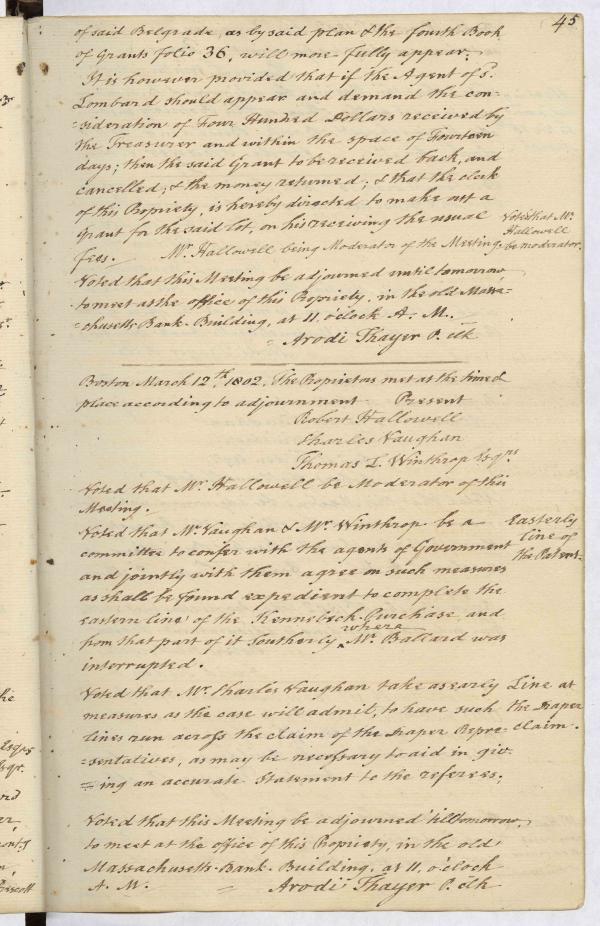 45
of said Belgrade, as by said plan & the fourth Book
of Grants folio 36, will more fully appear.
It is however provided that if the Agent of S.
Lombard should appear and demand the con-
=sideration of Four Hundred Dollars received by
the Treasurer and within the space of Fourteen
days; then the said Grant to be received back, and
cancelled; & the money returned; & that the clerk
of this Propriety, is hereby directed to make out a
Grant for the said lot, on his receiving the usual
fees. Mr. Hallowell being Moderator of the Meeting.
Voted that Mr.
Hallowell
be moderator.
Voted that this Meeting be adjourned until tomorrow
to meet at the office of this Propriety, in the old Massa-
=chusetts Bank Building, at 11. o'clock A. M..
Arodi Thayer P. Clk
Boston March 12th. 1802. The Proprietors met at the time &
place according to adjournment Present
Robert Hallowell
Charles Vaughan
Thomas L. Winthrop Esqrs
Voted that Mr. Hallowell be Moderator of this
Meeting.
Voted that Mr. Vaughan & Mr. Winthrop be a
committee to confer with the agents of Government
and jointly with them agree on such measures
as shall be found expedient to complete the
eastern line of the Kennebeck Purchase and
from that part of it Southerly where Mr. Ballard was
interrupted.
Easterly
line of
the Patent.
Voted that Mr. Charles Vaughan take as early
measures as the case will admit, to have such
lines run across the claim of the Draper Repre-
=sentatives, as may be necessary to aid in giv-
=ing an accurate Statement to the referees.
Line at
the Draper
claim.
Voted that this Meeting be adjourned till tomorrow,
to meet at the office of this Propriety, in the old
Massachusetts Bank Building, at 11, o'clock
A. M. = Arodi Thayer P. Clk
Esqrs
Esqr.